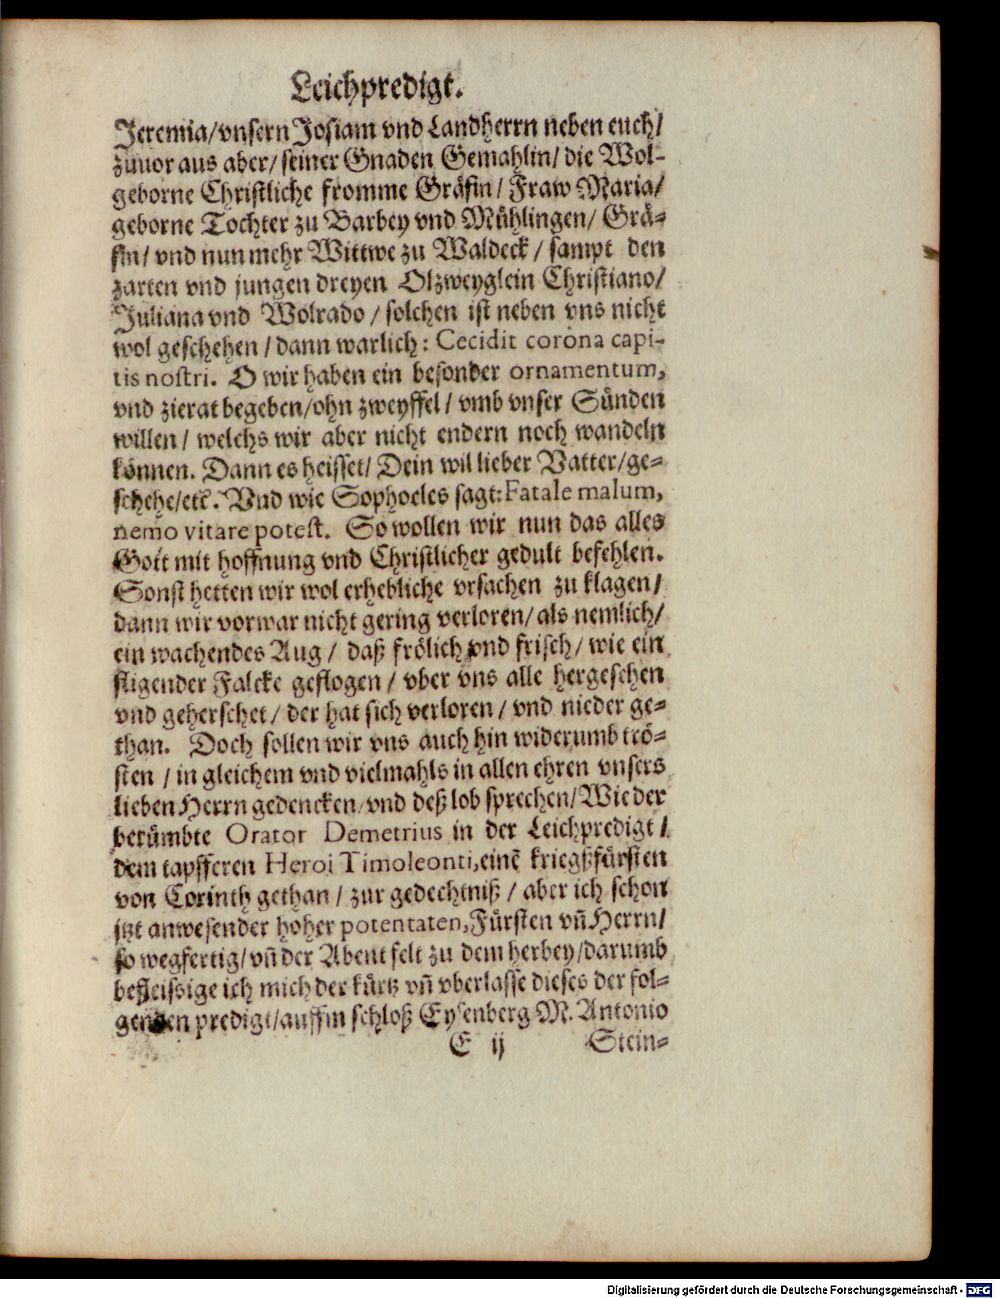 Leichpredigt.
Jeremia/vnsern Josiam vnd Landherrn neben euch/
zuuor aus aber/ seiner Gnaden Gemahlin/ die Wol-
geborne Christliche fromme Gräfin/ Fraw Maria/
geborne Tochter zu Barbey vnd Mühlingen/ Grä-
fin/ vnd nun mehr Wittwe zu Waldeck/ sampt den
zarten vnd jungen dreyen Olzweyglein Christiano/
Juliana vnd Wolrado/ solchen ist neben vns nicht
wol geschehen/ dann warlich: Cecidit corona capi-
tis nostri. O wir haben ein besonder ornamentum,
vnd zierat begeben/ohn zweyffel/ vmb vnser Sünden
willen/ welchs wir aber nicht endern noch wandeln
können. Dann es heisset/ Dein wil lieber Vatter/ge-
schehe/etc. Vnd wie Sophocles sagt: Fatale malum,
nemo vitare potest. So wollen wir nun das alles
Gott mit hoffnung vnd Christlicher gedult befehlen.
Sonst hetten wir wol erhebliche vrsachen zu klagen/
dann wir vorwar nicht gering verloren/ als nemlich/
ein wachendes Aug/ daß frölich vnd frisch/ wie ein
fligender Falcke geflogen/ vber vns alle hergesehen
vnd geherschet/ der hat sich verloren/ vnd nieder ge-
than. Doch sollen wir vns auch hin widerumb trö-
sten/ in gleichem vnd vielmahls in allen ehren vnsers
lieben Herrn gedencken/vnd deß lob sprechen/ Wie der
berümbte Orator Demetrius in der Leichpredigt/
dem tapfferen Heroi Timoleonti, einē kriegßfürsten
von Corinth gethan/ zur gedechtniß/ aber ich schon
jtzt anwesender hoher potentaten, Fürsten vñ Herrn/
so wegfertig/vñ der Abent felt zu dem herbey/darumb
befleissige ich mich der kürtz vñ vberlasse dieses der fol-
genden predigt/auffm schloß Eysenberg M. Antonio
E ij Stein-
Digitalisierung gefördert durch die Deutsche Forschungsgemeinschaft - DFG